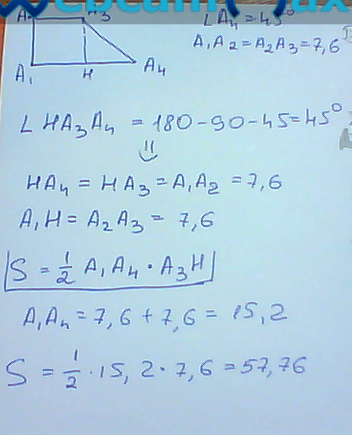 A₃
∠A₄ = 45°
A₁A₂ = A₂A₃ = 7,6
A₁ H A₄
∠ HA₃A₄ = 180 - 90 - 45 = 45°
⇓
HA₄ = HA₃ = A₁A₂ = 7,6
A₁H = A₂A₃ = 7,6
S = 1/2 A₁A₄ · A₃H
A₁A₄ = 7,6 + 7,6 = 15,2
S = 1/2 · 15,2 · 7,6 = 57,76